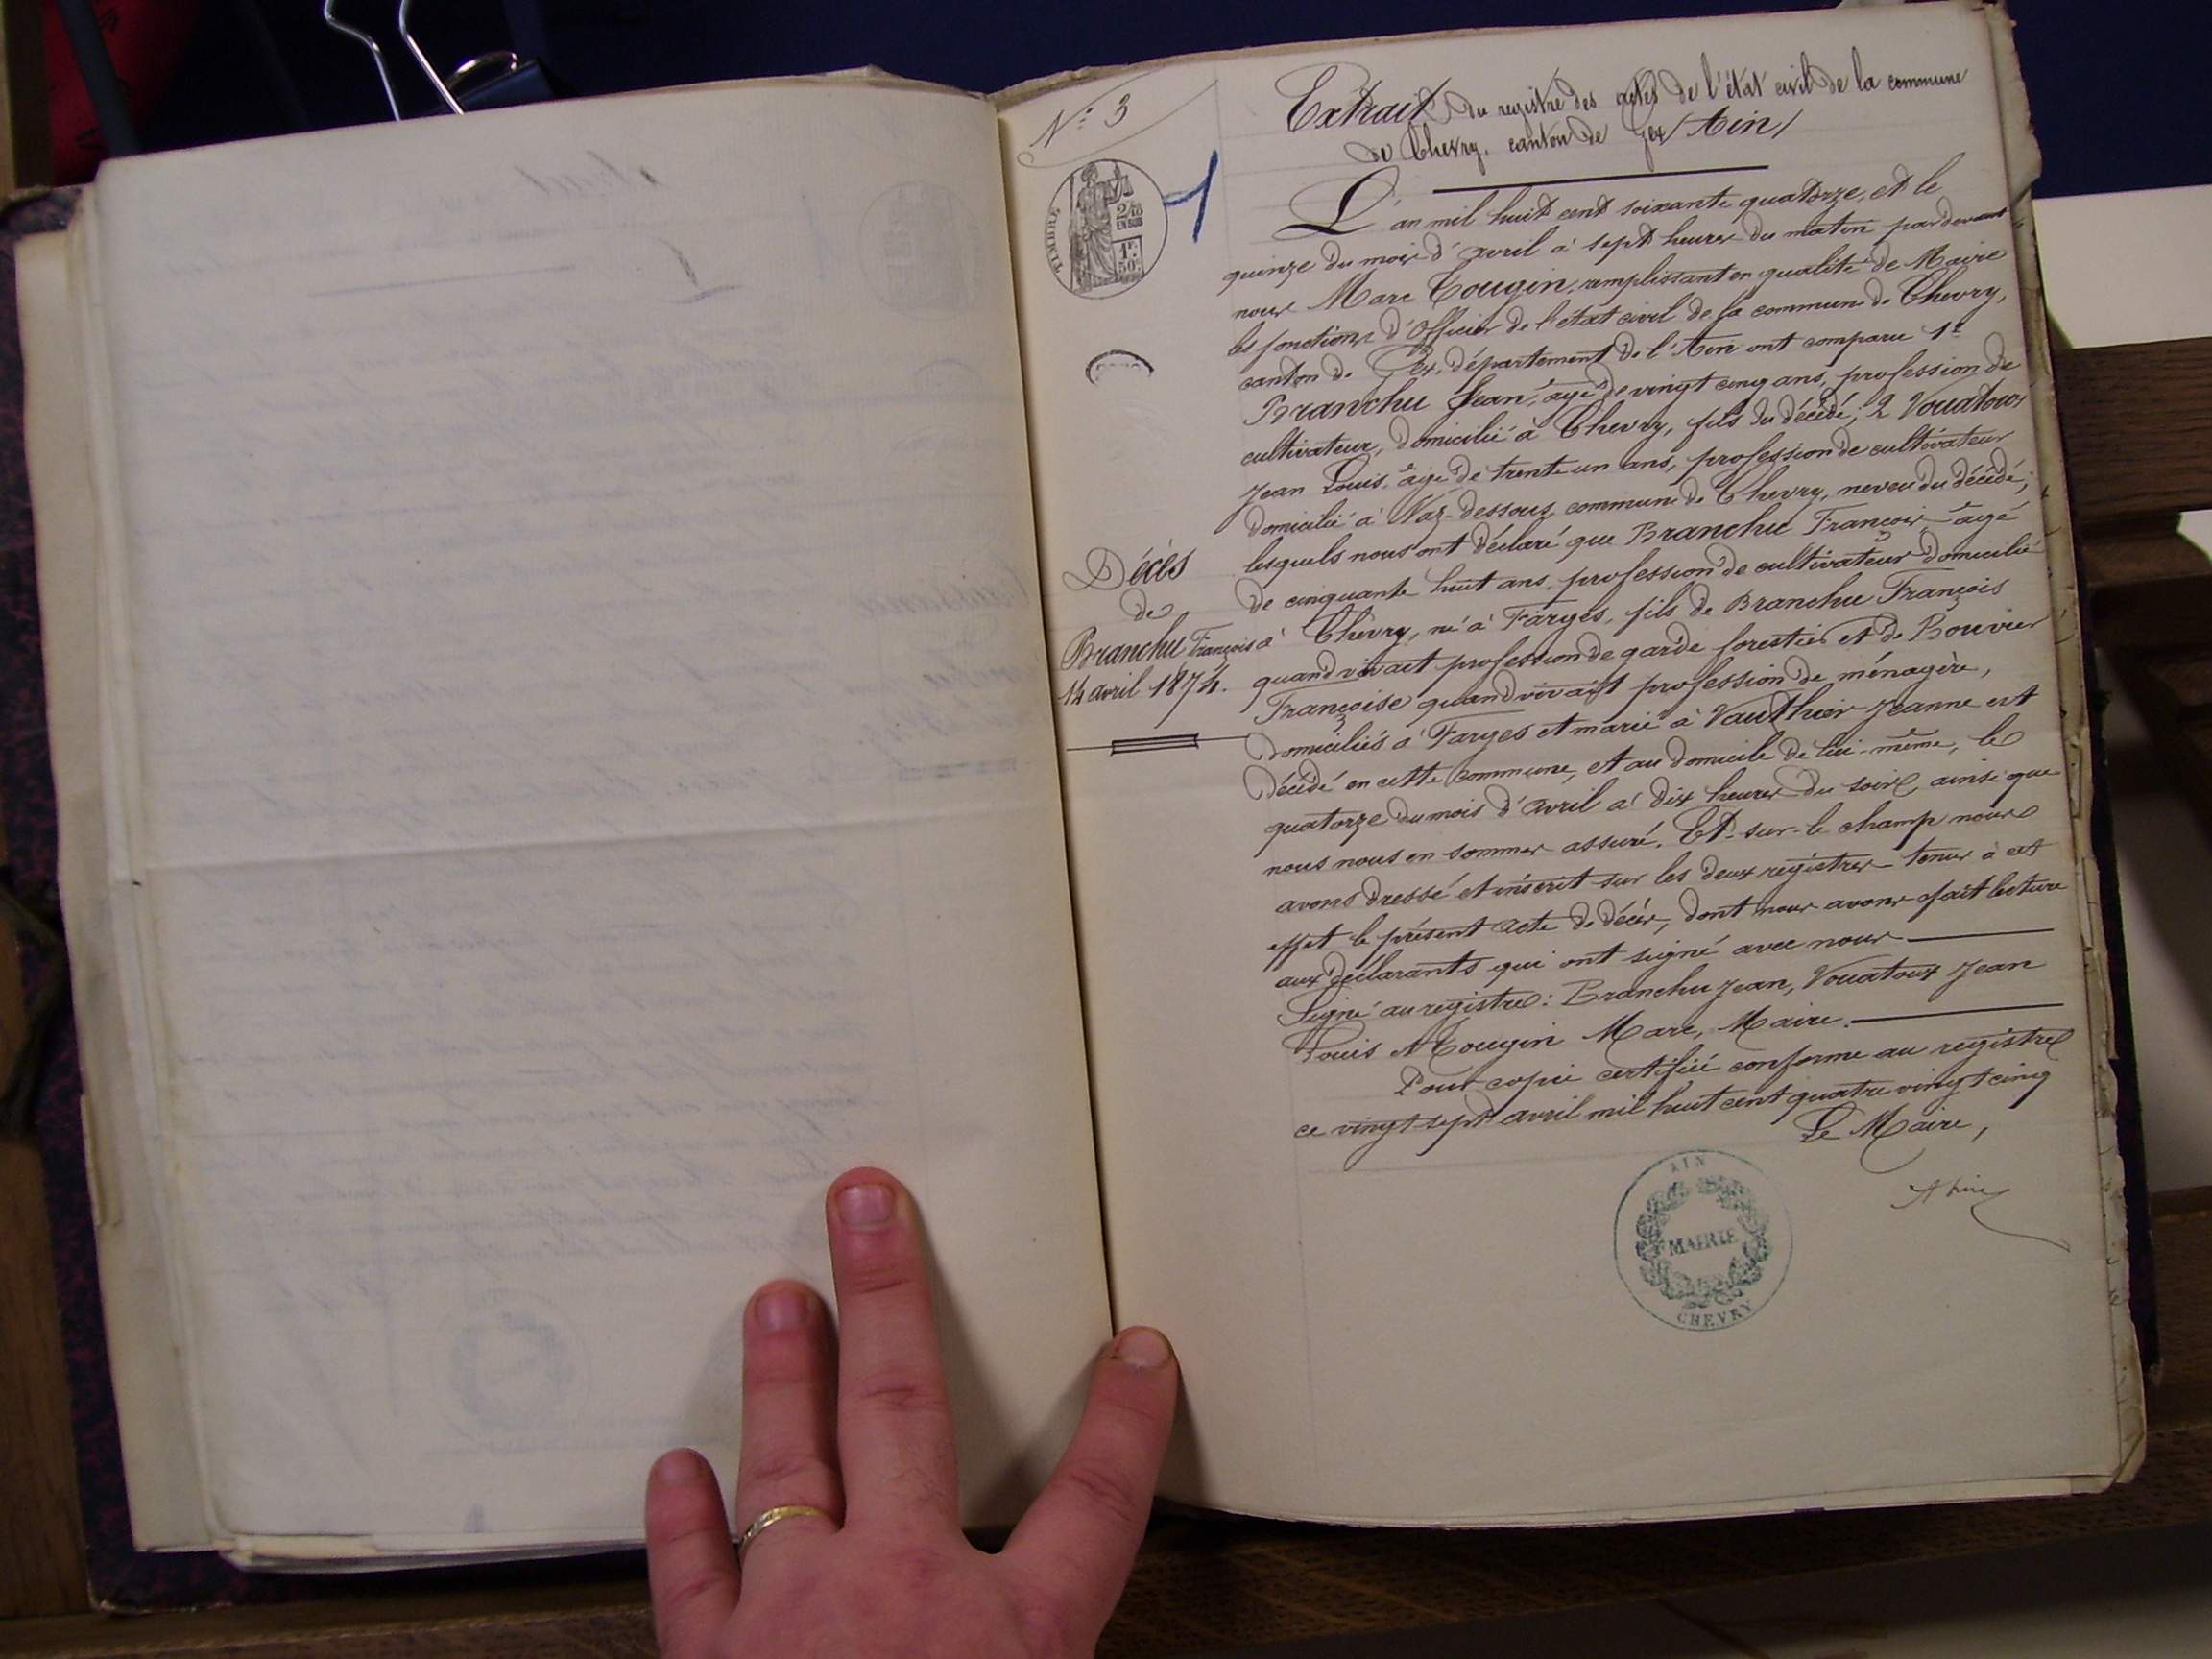 N° 3
Extrait du registre des actes de l'état civil de la commune
de Chevry, canton de Gex (Ain)
TIMBRE
2/10
EN SUS
1F
50c
1
L'an mil huit cent soixante quatorze, et le
quinze du mois d'avril à sept heures du matin par devant
nous Marc Tougin, remplissant en qualité de Maire
les fonctions d'Officier de l'état civil de la commune de Chevry,
canton de Gex, département de l'Ain ont comparu 1°
Branchu Jean, âgé de vingt cinq ans, profession de
cultivateur, domicilié à Chevry, fils du décédé; 2 Vouatoux
Jean Louis, âgé de trente un ans, profession de cultivateur
domicilié à Naz-dessous commune de Chevry, neveu du décédé;
lesquels nous ont déclaré que Branchu François âgé
de cinquante huit ans, profession de cultivateur domicilié
à Chevry, né à Farges, fils de Branchu François
quand vivait profession de garde forestier et de Bouvier
Françoise quand vivait profession de ménagère,
domiciliés à Farges et marié à Vauthier Jeanne est
décédé en cette commune, et au domicile de lui-même, le
quatorze du mois d'avril à dix heures du soir, ainsi que
nous nous en sommes assuré. Et sur-le champ nous
avons dressé et inscrit sur les deux registres tenus à cet
effet le présent acte de décès, dont nous avons fait lecture
aux déclarants qui ont signé avec nous
Signé au registre: Branchu Jean, Vouatoux Jean
Louis et Tougin Marc, Maire.
Pour copie certifiée conforme au registre
ce vingt-sept avril mil huit cent quatre vingt cinq
Le Maire,
Décès
de
Branchu François
14 avril 1874.
AIN
MAIRIE
CHEVRY